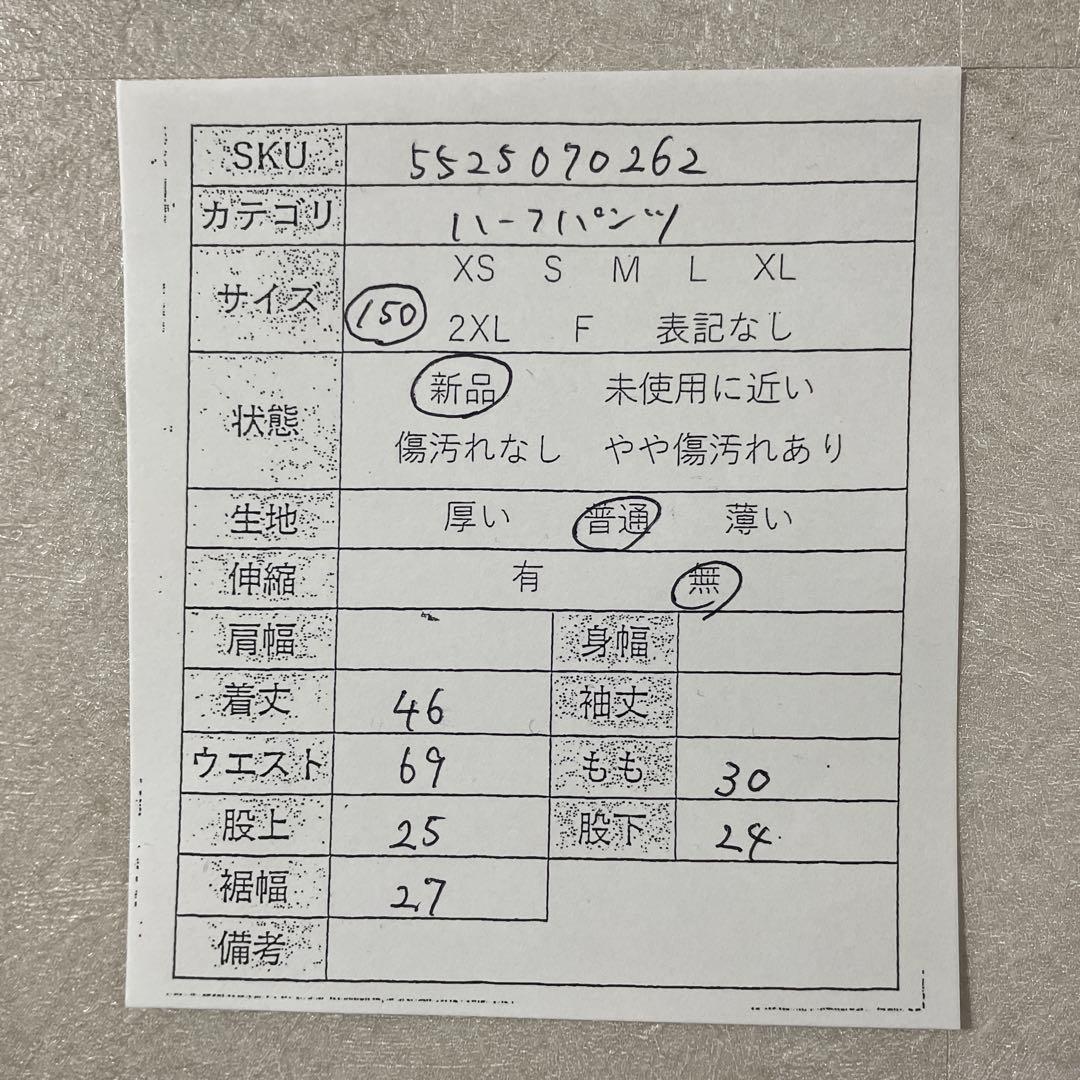 SKU 5525070262
カテゴリ ハーフパンツ
サイズ XS S M L XL
150 2XL F 表記なし
状態 新品 未使用に近い
傷汚れなし やや傷汚れあり
生地 厚い 普通 薄い
伸縮 有 無
肩幅 身幅
着丈 46 袖丈
ウエスト 69 もも 30
股上 25 股下 24
裾幅 27
備考